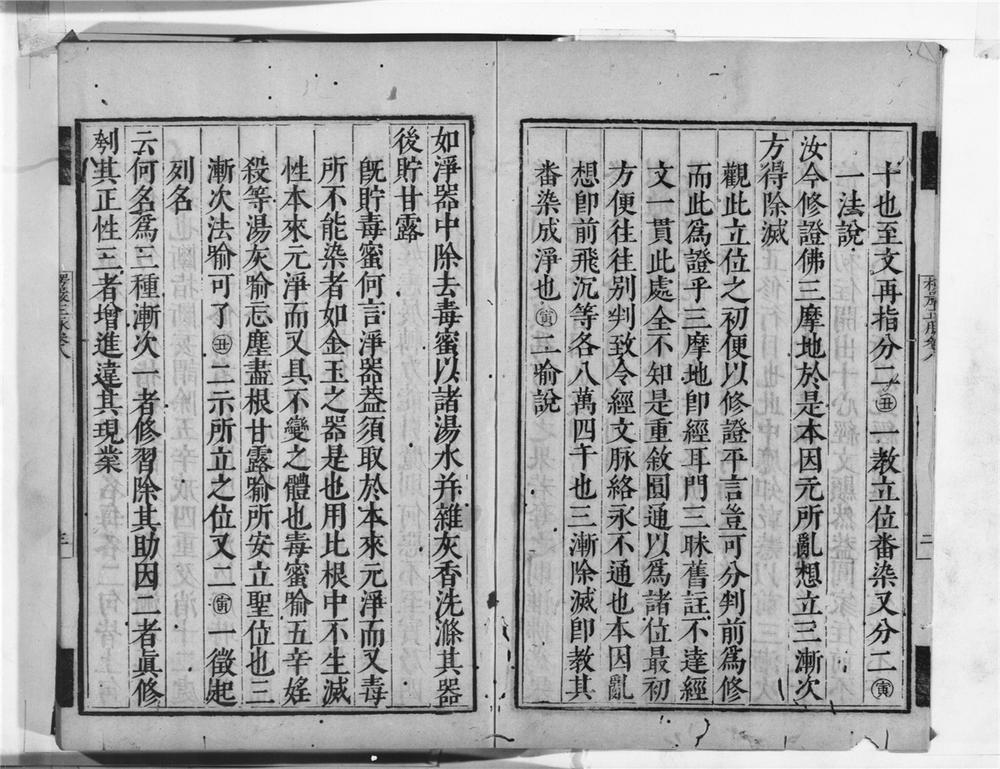 十也至文再指分二㊄丑一教立位番染又分二寅
一法說
汝今修證佛三摩地於是本因元所亂想立三漸次
方得除滅
觀此立位之初便以修證平言豈可分判前爲修
而此爲證乎三摩地卽經耳門三昧舊註不達經
文一貫此處全不知是重敘圓通以爲諸位最初
方便往往別判致令經文脉絡永不通也本因亂
想卽前飛沉等各八萬四千也三漸除滅卽教其
番染成淨也寅二喻說
如淨器中除去毒蜜以諸湯水并雜灰香洗滌其器
後貯甘露
旣貯毒蜜何言淨器葢須取於本來元淨而又毒
所不能染者如金玉之器是也用比根中不生滅
性本來元淨而又具不變之體也毒蜜喻五辛婬
殺等湯灰喻忘塵盡根甘露喻所安立聖位也三
漸次法喻可了丑二示所立之位又二寅一徵起
列名
云何名爲三種漸次一者修習除其助因二者眞修
刳其正性三者增進違其現業